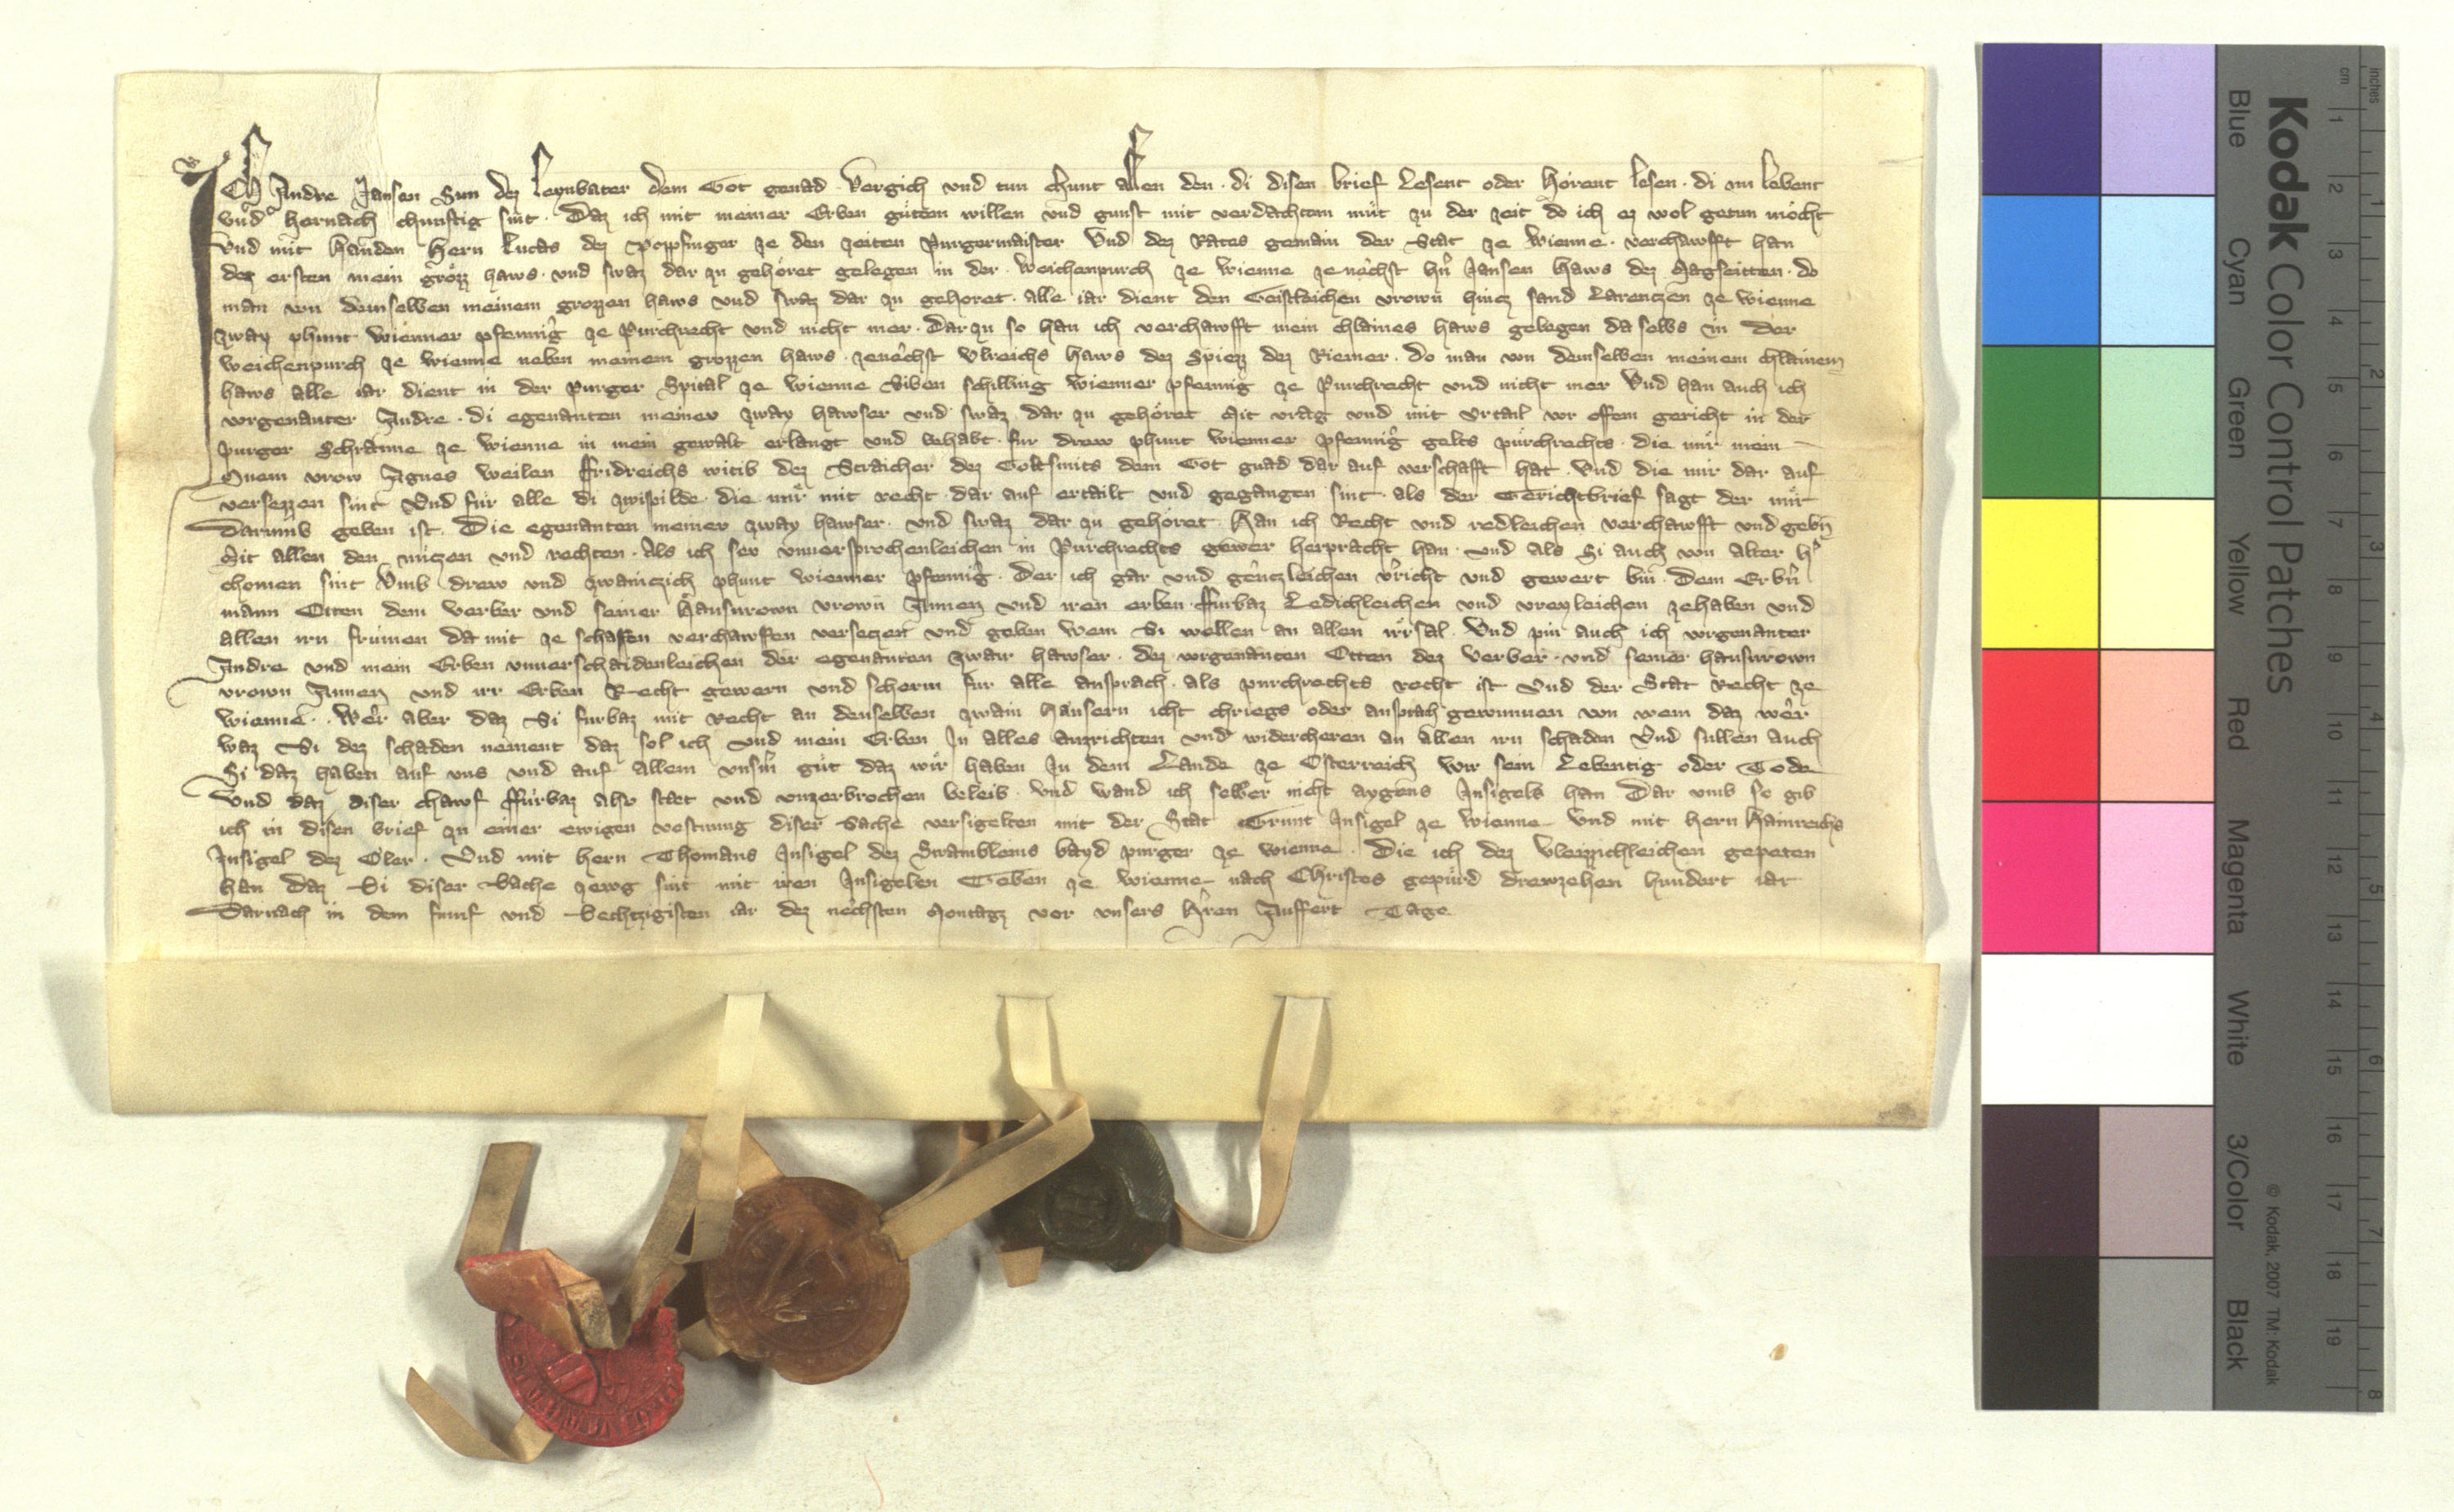 ICh Andre Jansen Sun dez Leynbater dem Got genad Vergich vnd tun chunt allen den di disen brief Lesent oder hörent lesen di nu lebent
vnd hernach chunftig sint Daz ich mit meiner Erben gütem willen vnd gunst mit verdachtem müt zu der zeit do ich ez wol getun möcht
vnd mit handen hern Lucas dez Poppfinger ze den zeiten Purgermaister vnd dez Rates gemain der Stat ze Wienne verchawfft han
dez ersten mein grözz haws vnd swaz dar zu gehöret gelegen in der Weichenpurch ze Wienne zenechst hn Jansen haws dez Magseitten do
man von demselben meinem grozzen haws vnd swaz dar zu gehoret alle iar dient den Geistleichen vrown hincz sand Larenczen ze Wienne
zway phunt wienner pfennig ze Purchrecht vnd nicht mer Darzu so han ich verchawfft mein chlaines haws gelegen da selbs in der
weichenpurch ze wienne neben meinem grozzen haws zenechst Vlreichs haws dez Spiezz dez Riemer do man von demselben meinem chlainem
haws alle iar dient in der Purger Spital ze wienne Siben schilling wienner pfennig ze Purchrecht vnd nicht mer Vnd han auch ich
vorgenanter Andre di egenanten meinev zway hawser vnd swaz dar zu gehöret Mit vrag vnd mit vrtail vor offem gericht in der
Purger Schranne ze wienne in mein gewalt erlangt vnd behabt für drew phunt wienner pfennig gelts pürchrechts die mir mein
Muem vrow Agnes weilen ffridreichs witib dez Straicher dez Goltsmits dem Got gnad dar auf verschafft hat Vnd die mir dar auf
versezzen sint Vnd für alle di zwispilde die mir mit recht dar auf ertailt vnd gegangen sint als der Gerichtbrief sagt der mir
Darumb geben ist Die egenanten meinev zway hawser vnd swaz dar zu gehöret han ich Recht vnd redleichen verchawfft vnd gebn
Mit allen den nüczen vnd rechten Als ich sev vnuersprochenleichen in Purchrechts gewer herpracht han vnd als Si auch von alter h
chomen sint Vmb drew vnd zwainczich phunt wienner pfennig Der ich gar vnd genczleichen vericht vnd gewert bin Dem Erbn
mann Otten dem verber vnd seiner hausurown vrown Annen vnd iren erben ffurbaz Ledichleichen vnd vreyleichen zehaben vnd
allen irn frümen da mit ze schaffen verchawffen versetzen vnd geben wem Si wellen an allen irrsal Vnd pin auch ich vorgenanter
Andre vnd mein Erben vnuerschaidenleichen der egenanten zwair hawser dez vorgenanten Otten dez verber vnd seiner hausurown
vrown Annen vnd irr Erben Recht gewern vnd scherm für alle ansprach als purchrechts recht ist Vnd der Stat Recht ze
wienne Wer aber daz Si furbaz mit Recht an denselben zwain hausern icht chriegs oder ansprach gewunnen von wem daz wer
waz Si dez schaden nement daz sol ich vnd mein Erben In alles auzrichten vnd widercheren an allen irn schaden Vnd sullen auch
Si daz haben auf vns vnd auf allem vnserm güt daz wir haben In dem Lande ze Osterreich wir sein Lebentig oder Tode
Vnd daz diser chawf ffürbaz also staet vnd vnzerbrochen beleib Vnd wand ich selber nicht aygens Insigels han Dar vmb so gib
ich in disen brief zu einer ewigen vestnung diser Sache versigelten mit der Stat Grunt Insigel ze wienne Vnd mit hern Hainreichs
Insigel dez Oler Vnd mit hern Thomans Insigel dez Swembleins bayd purger ze wienne Die ich dez vleizzichleichen gepeten
han daz Si diser Sache zewg sint mit iren Insigelen Geben ze wienne nach Christes gepürd drewzehen hundert iar
Darnach in dem fumf vnd Sechtzigisten iar dez nechsten Montagz vor vnsers Hren Auffert Tage
Kodak Color Control Patches
© Kodak, 2007 TM: Kodak
Blue Cyan Green Yellow Red Magenta White 3/Color Black
inches 1 2 3 4 5 6 7 8
cm 1 2 3 4 5 6 7 8 9 10 11 12 13 14 15 16 17 18 19